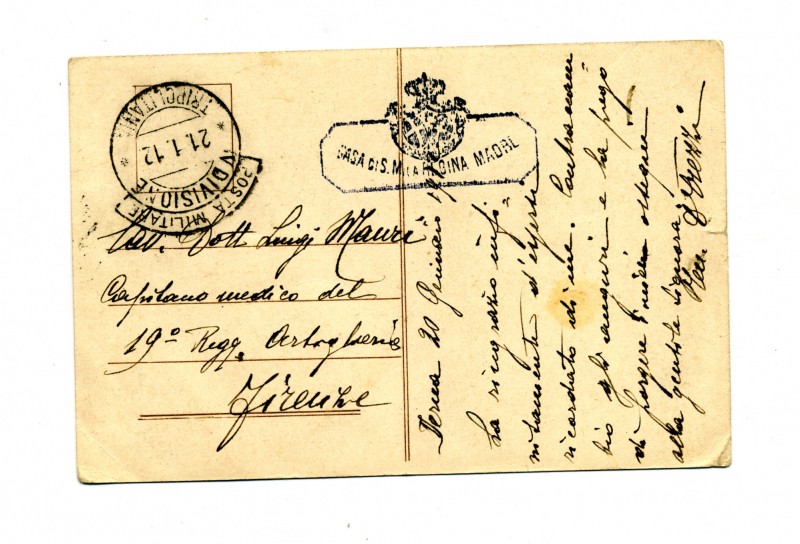 TRIPOLITANIA
21.1.12
IV DIVISIONE
POSTA MILITARE
CASA DI S.M. LA REGINA MADRE
Cav. Dott Luigi Mauri
Capitano medico del
19º Regg. Artiglieria
Firenze
Derna 20 Gennaio 1912
La ringrazio infi-
nitamente d'essersi
ricordato di me. Contraccam
bio gli auguri e la prego
di porgere i miei ossequi
alla gentile signora